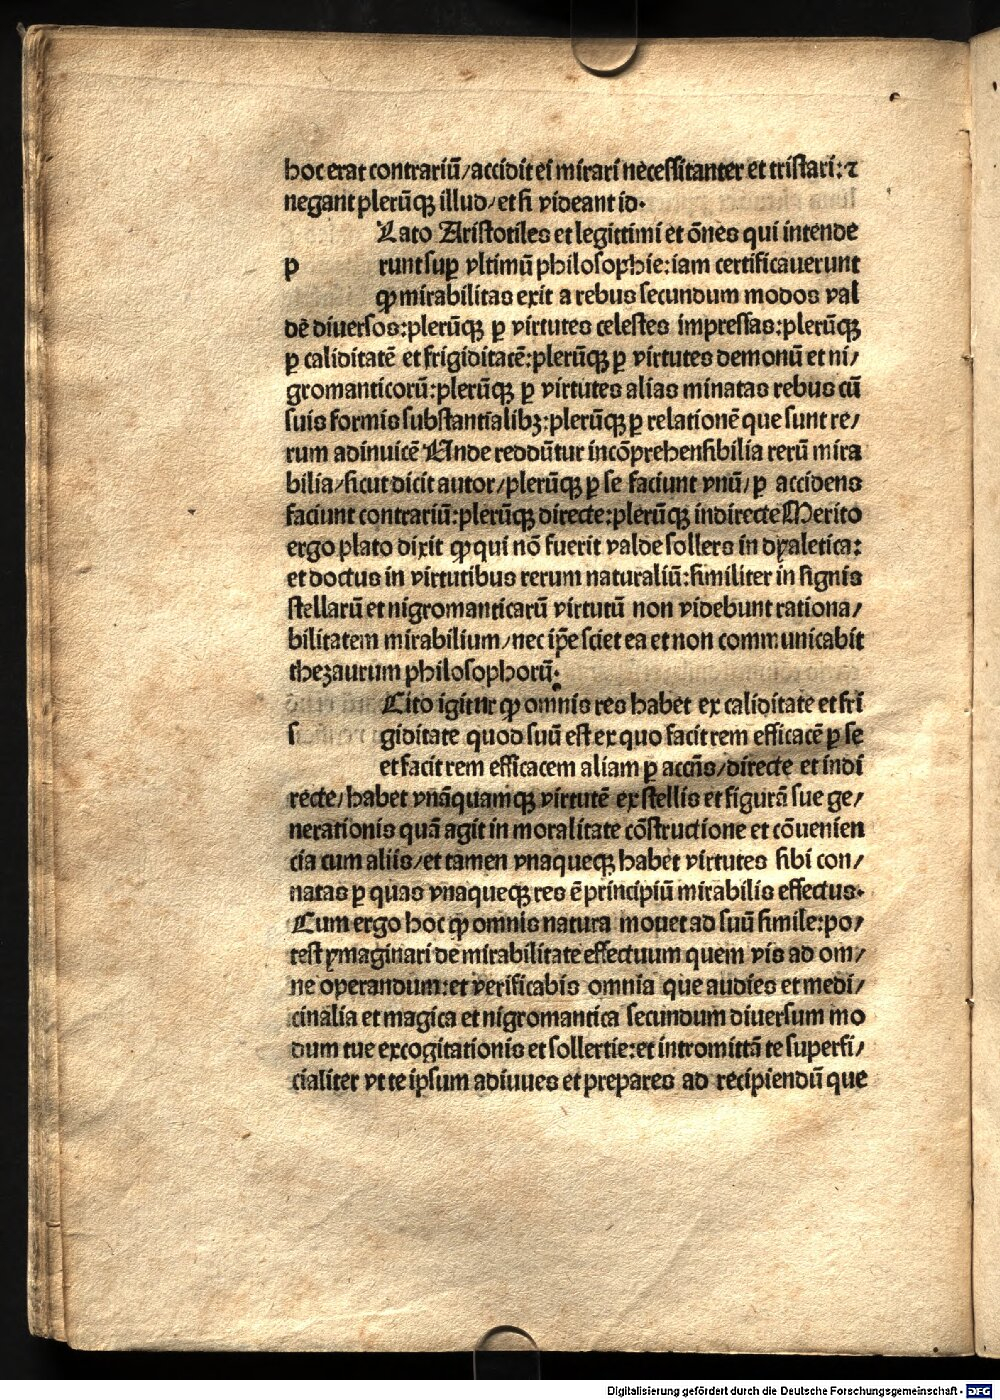 hoc erat contrariū/accidit ei mirari necessitanter et tristari:⁊
negant plerūqꝫ illud/et si videant id·
Lato Aristotiles et legittimi et ōnes qui intende
p runt suꝑ vltimū philosophie:iam certificauerunt
ꝙ mirabilitas exit a rebus secundum modos val
dē diuersos:plerūqꝫ ꝑ virtutes celestes impressas:plerūqꝫ
ꝑ caliditatē et frigiditatē:plerūqꝫ ꝑ virtutes demonū et ni/
gromanticorū:plerūqꝫ ꝑ virtutes alias minatas rebus cū
suis formis substantialibꝫ:plerūqꝫ ꝑ relationē que sunt re/
rum adinuicē Unde reddūtur incōprehensibilia rerū mira
bilia/sicut dicit autor/plerūqꝫ ꝑ se faciunt vnū/ꝑ accidens
faciunt contrariū:plerūqꝫ directe:plerūqꝫ indirecte Merito
ergo plato dixit ꝙ qui nō fuerit valde sollers in dyaletica:
et doctus in virtutibus rerum naturaliū:similiter in signis
stellarū et nigromanticarū virtutū non videbunt rationa/
bilitatem mirabilium/nec ip̄e sciet ea et non communicabit
thezaurum philosophorū·
Cito igitur ꝙ omnis res habet ex caliditate et fri
s giditate quod suū est ex quo facit rem efficacē ꝑ se
et facit rem efficacem aliam ꝑ accn̄s/directe et indi
recte/habet vnāquamqꝫ virtutē ex stellis et figurā sue ge/
nerationis quā agit in moralitate cōstructione et cōuenien
cia cum aliis/et tamen vnaqueqꝫ habet virtutes sibi con/
natas ꝑ quas vnaqueqꝫ res ē principiū mirabilis effectus·
Cum ergo hoc ꝙ omnis natura mouet ad suū simile:po/
test ymaginari de mirabilitate effectuum quem vis ad om/
ne operandum:et verificabis omnia que audies et medi/
cinalia et magica et nigromantica secundum diuersum mo
dum tue excogitationis et sollertie:et intromittā te superfi/
cialiter vt te ipsum adiuues et prepares ad recipiendū que
Digitalisierung gefördert durch die Deutsche Forschungsgemeinschaft - DFG